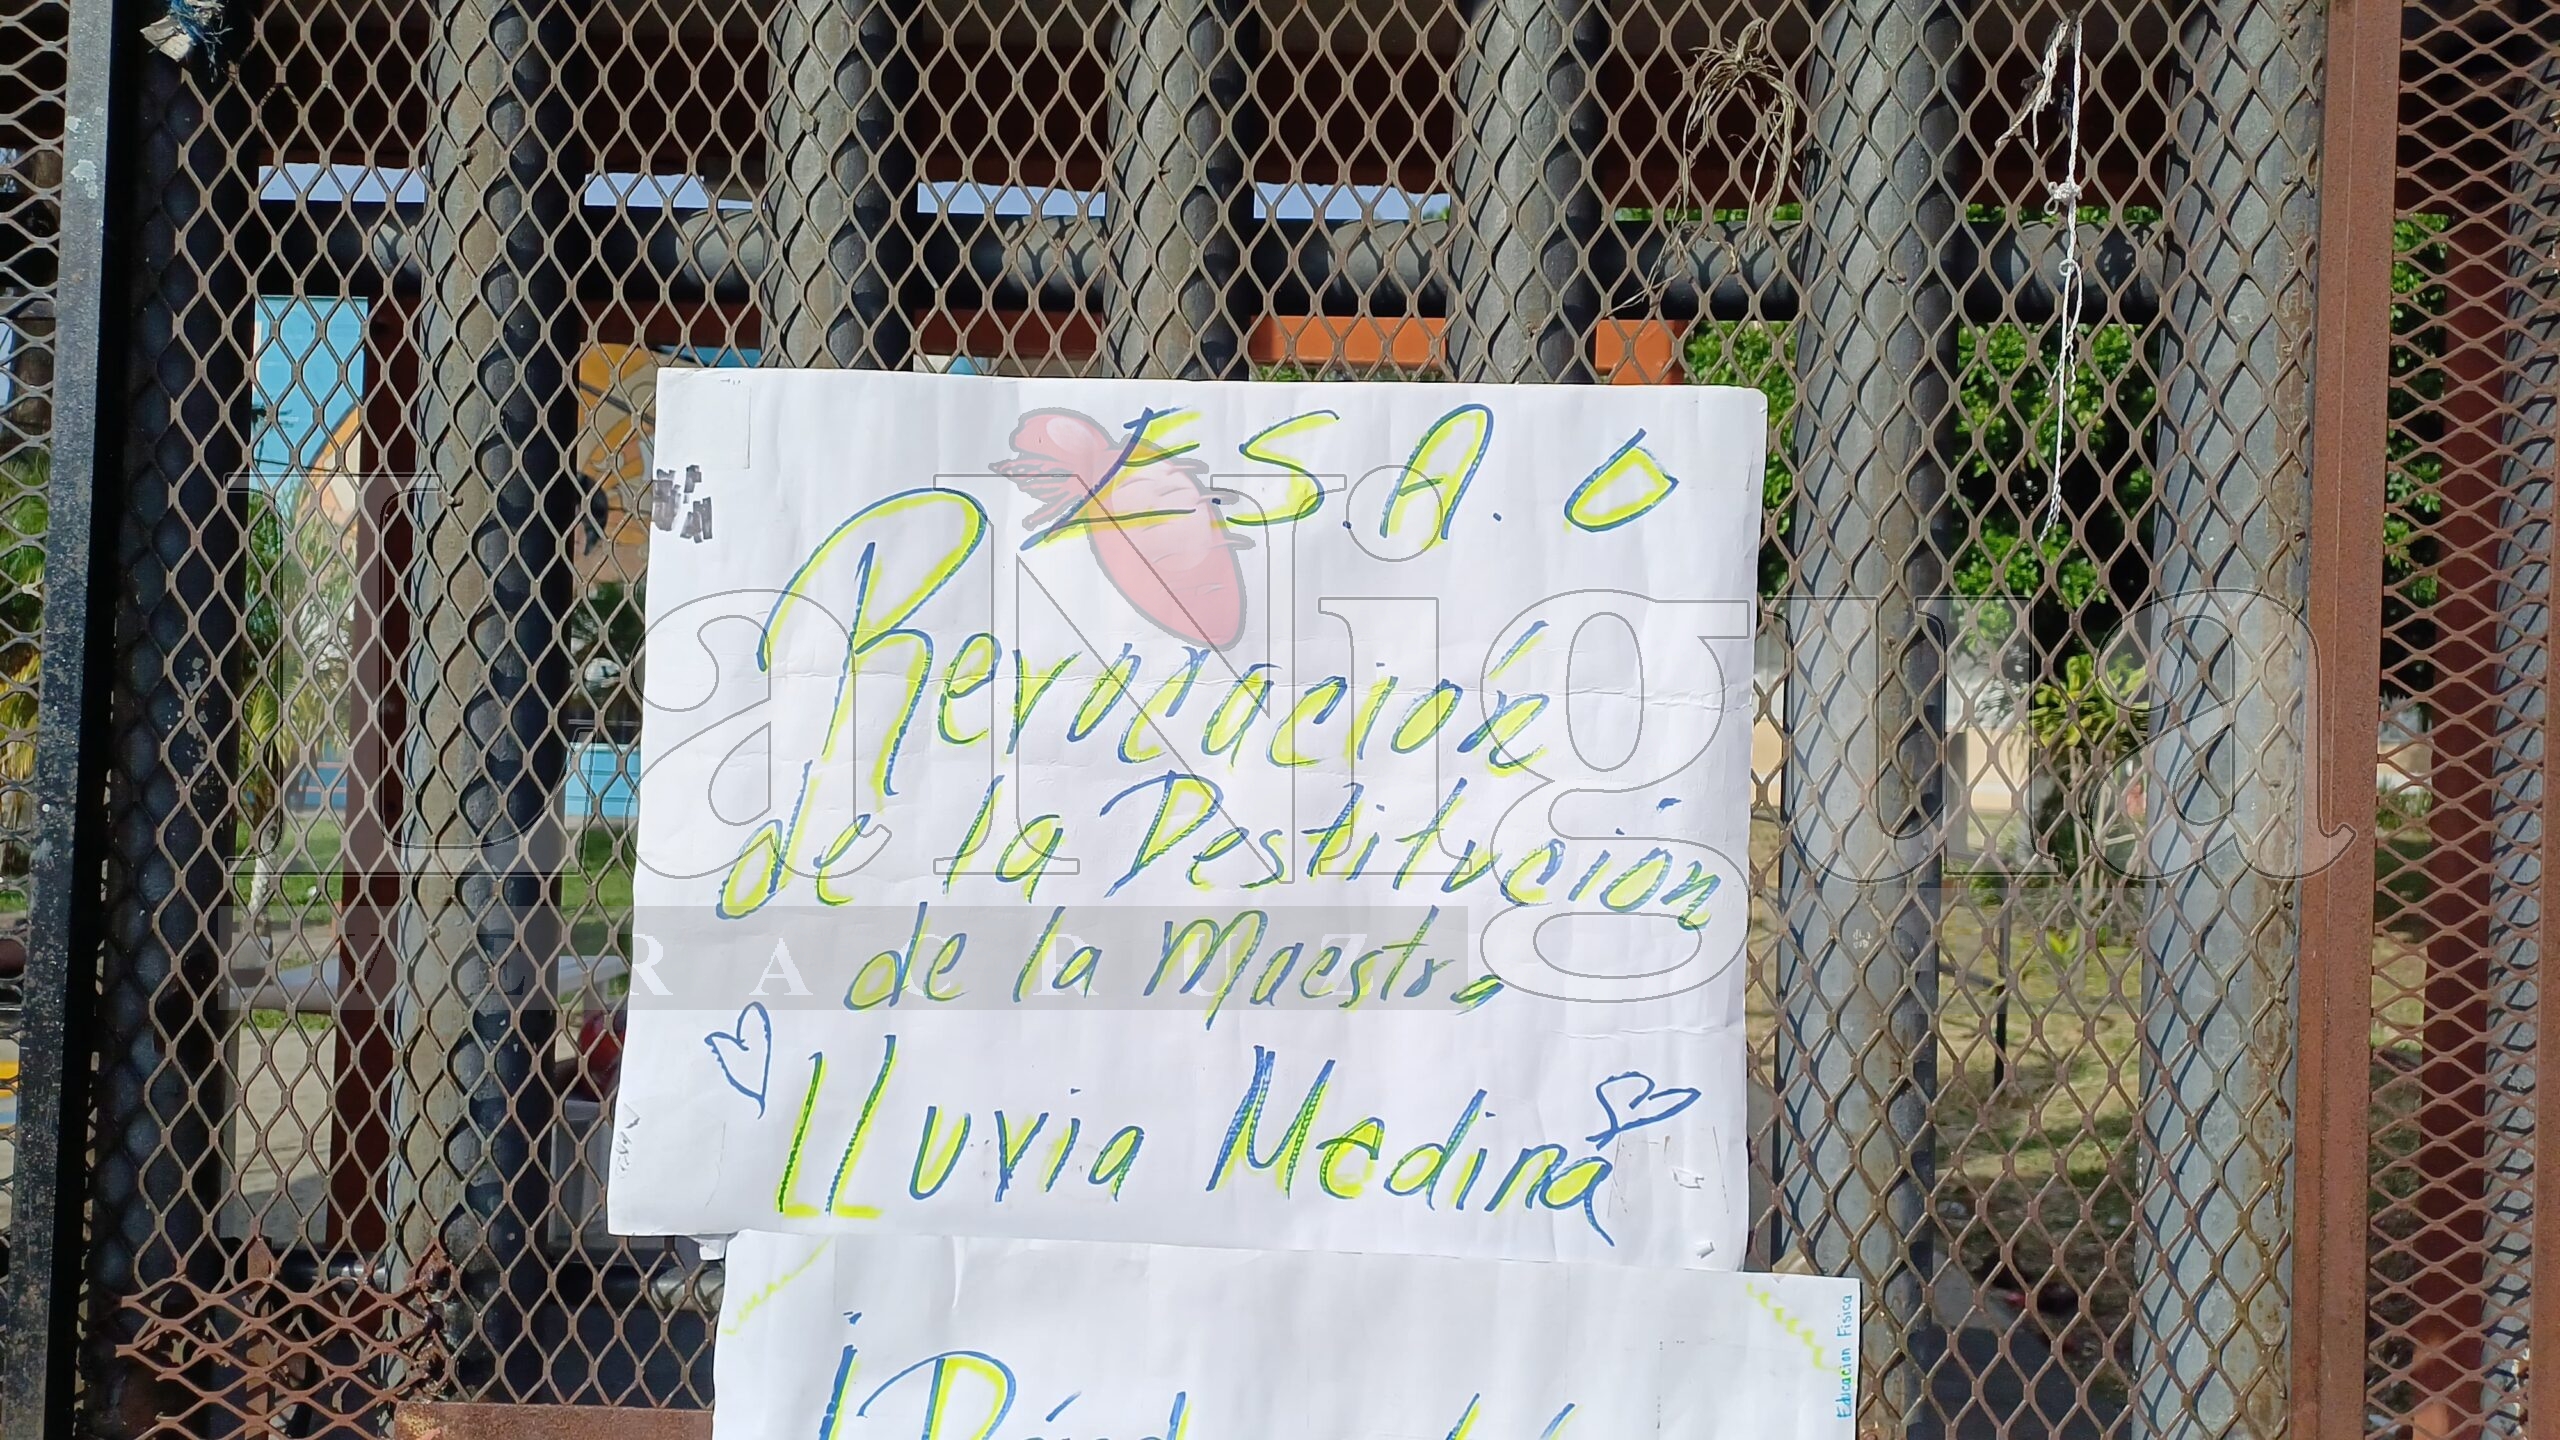 E.S.A. O
Revocación
de la Destitución
de la Maestra
LLuvia Medina
Educacion Fisica
LaNigua
VERACRUZ